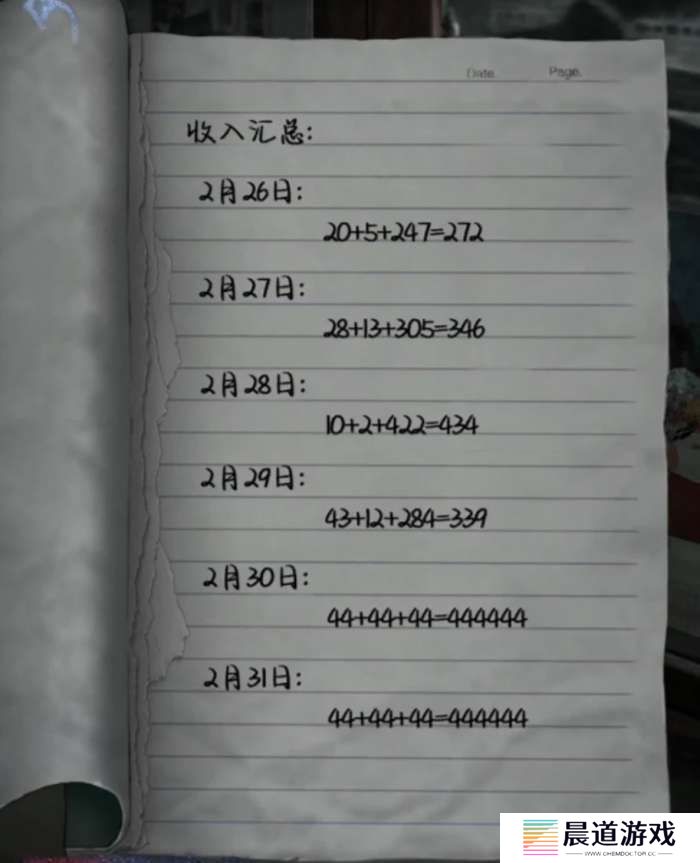 Date.
Page.
收入汇总:
2月26日:
20+5+247=272
2月27日:
28+13+305=346
2月28日:
10+2+422=434
2月29日:
43+12+284=339
2月30日:
44+44+44=444444
2月31日:
44+44+44=444444
晨道游戏
WWW.CHEMDOCTOR.CC